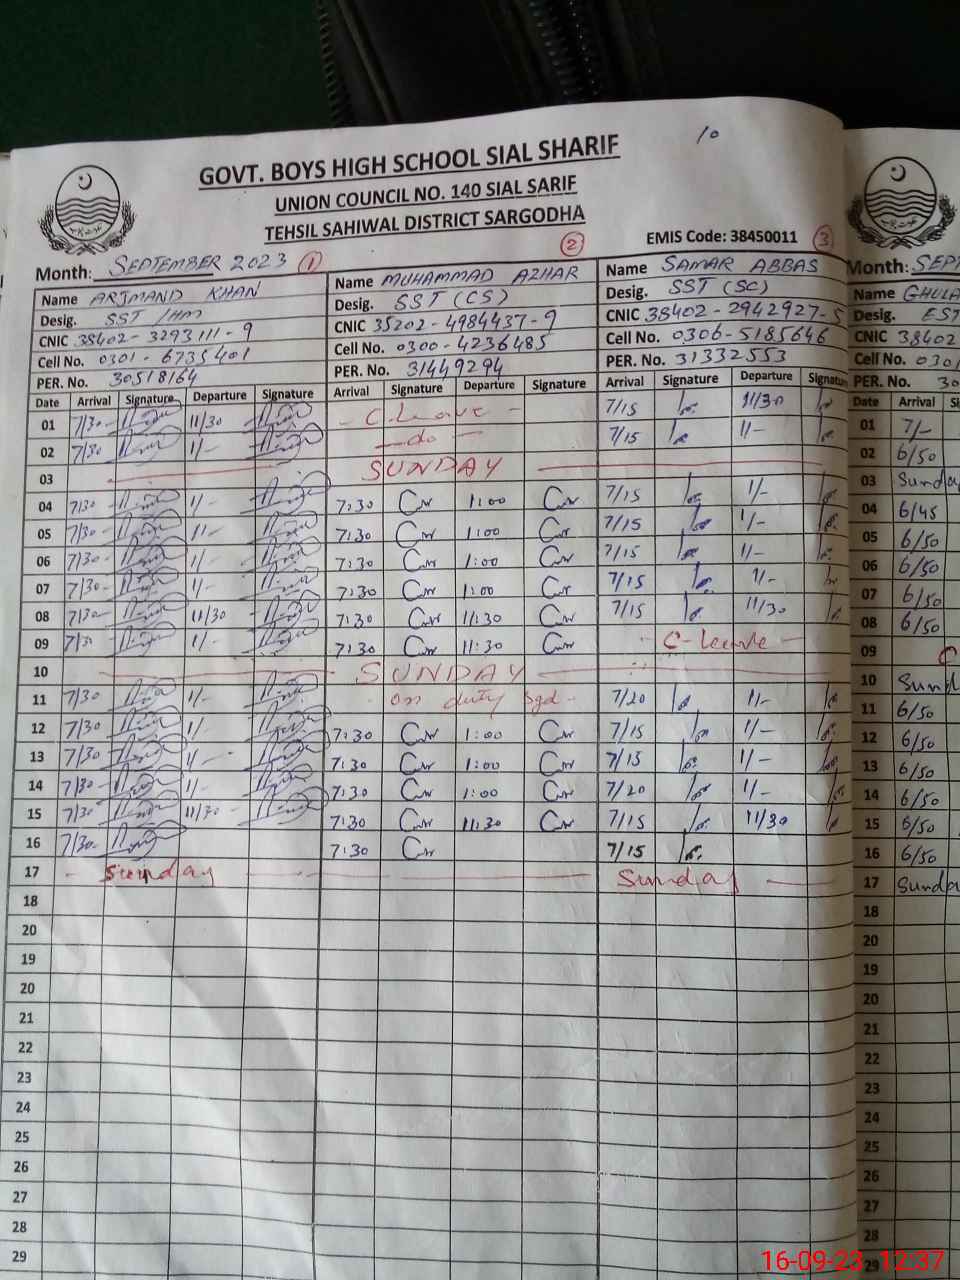 10
GOVT. BOYS HIGH SCHOOL SIAL SHARIF
UNION COUNCIL NO. 140 SIAL SARIF
TEHSIL SAHIWAL DISTRICT SARGODHA
EMIS Code: 38450011
Month: SEPTEMBER 2023 1 2 3
Name ARJMAND KHAN Name MUHAMMAD AZHAR Name SAMAR ABBAS
Desig. SST/HM Desig. SST (CS) Desig. SST (SC)
CNIC 38402-3293111-9 CNIC 35202-4984437-9 CNIC 38402-2942927-5
Cell No. 0301-6735401 Cell No. 0300-4236485 Cell No. 0306-5185646
PER. No. 30518164 PER. No. 31449294 PER. No. 31332553
Date Arrival Signature Departure Signature Arrival Signature Departure Signature Arrival Signature Departure Signature
01 7/30 11/30 C-Leave 7/15 11/30
02 7/30 1/- do 7/15 1/-
03 SUNDAY
04 7/30 1/- 7:30 1:00 7/15 1/-
05 7/30 1/- 7:30 1:00 7/15 1/-
06 7/30 1/- 7:30 1:00 7/15 1/-
07 7/30 1/- 7:30 1:00 7/15 1/-
08 7/30 11/30 7:30 11:30 7/15 11/30
09 7/30 1/- 7:30 11:30 C-leave
10 SUNDAY
11 7/30 1/- on duty Sgd 7/20 1/-
12 7/30 1/- 7:30 1:00 7/15 1/-
13 7/30 1/- 7:30 1:00 7/15 1/-
14 7/30 1/- 7:30 1:00 7/20 1/-
15 7/30 11/30 7:30 11:30 7/15 11/30
16 7/30 7:30 7/15
17 Sunday Sunday
18
20
19
20
21
22
23
24
25
26
27
28
29
Month: SEPT
Name GHULA
Desig. EST
CNIC 38402
Cell No. 030
PER. No. 30
Date Arrival
01 7/-
02 6/50
03 Sunda
04 6/45
05 6/50
06 6/50
07 6/50
08 6/50
09
10 Sund
11 6/50
12 6/50
13 6/50
14 6/50
15 6/50
16 6/50
17 Sunda
18
20
19
20
21
22
23
24
25
26
27
28
29
16-09-23 12:37